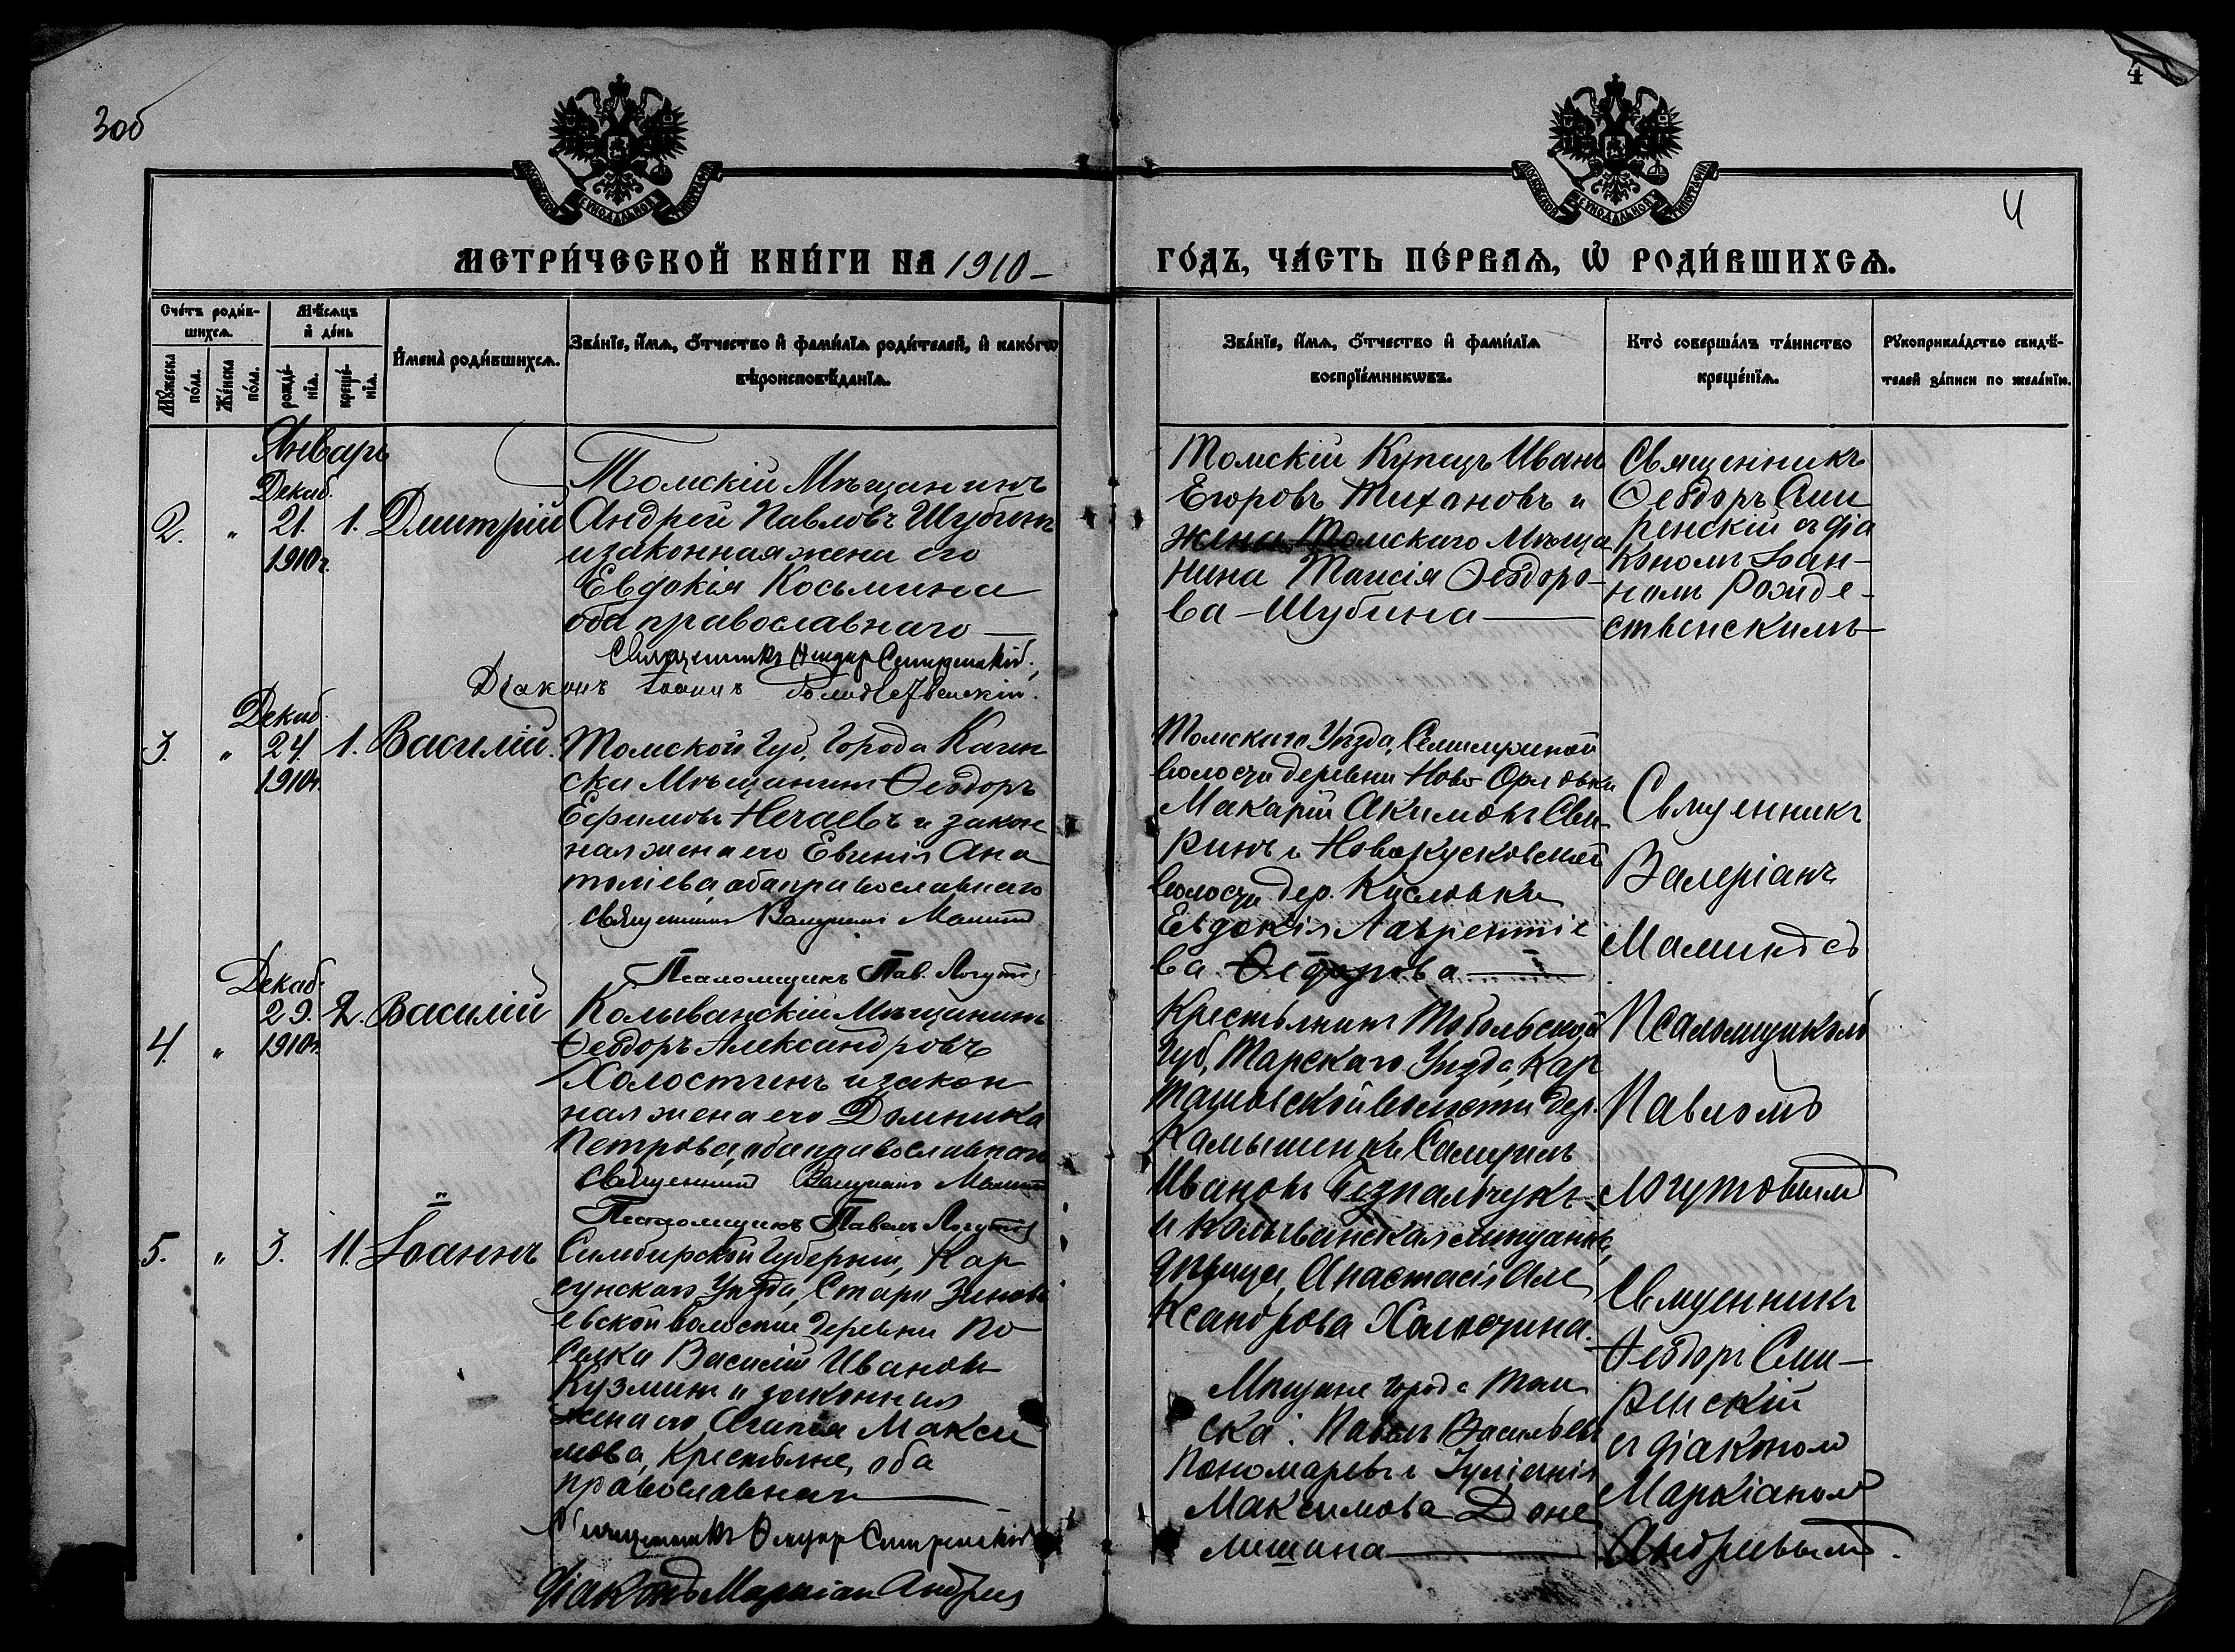 3об
4
МОСКОВСКОЙ СѴНОДАЛЬНОЙ ТИПОГРАФІИ
МОСКОВСКОЙ СѴНОДАЛЬНОЙ ТИПОГРАФІИ
4
МЕТРИ́ЧЕСКОЙ КНИ́ГИ НА 1910 –
ГО́ДЪ, ЧА́СТЬ ПЕ́РВАѦ, Ѡ҆ РОДИ́ВШИХСѦ.
Сче́тъ роди́в-
шихсѧ.
Мѣ́сѧцъ
и҆ де́нь
Мꙋ́жеска
по́ла.
Же́нска
по́ла.
рожде́-
нїѧ.
креще́-
нїѧ.
И҆мена̀ роди́вшихсѧ.
Зва́нїе, и҆́мѧ, ѻ҆́тчество и҆ фами́лїѧ роди́телей, и҆ како́гѡ
вѣроисповѣ́данїѧ.
Зва́нїе, и҆́мѧ, ѻ҆́тчество и҆ фами́лїѧ
воспрїе́мникѡвъ.
Кто̀ соверша́лъ та́инство
креще́нїѧ.
Рꙋкоприкла́дство свидѣ́-
телей за́писи по жела́нїю.
Январь
Декаб.
2. " 21. 1. Дмитрій
1910 г.
Томскій Мѣщанинъ
Андрей Павловъ Шубинъ
и законная жена его
Евдокія Косьмина
оба православнаго —
Священникъ Ѳеодор Смиренскій.
Діаконъ Іоаннъ Рождественскій.
Томскій Купецъ Иванъ
Егоровъ Тихановъ и
жена Томскаго Мѣща
нина Таисія Ѳеодоро-
ва – Шубина —
Священникъ
Ѳеодоръ Сми
ренскій съ діа
кономъ Іоан-
номъ Рожде-
ственскимъ —
Декаб.
3. " 24. 1. Василій.
1910 г.
Томской Губ, Города Каин
ска Мѣщанинъ Ѳеодоръ
Ефимовъ Нечаевъ и закон
ная жена его Евгенія Ана
толіева, оба православнаго
Священникъ Валеріанъ Мамин
Псаломщикъ Пав. Логутов
Томскаго Уѣзда, Семилужной
волости деревни Ново Орловки
Макарій Акимовъ Сви-
ринъ и Новокусковской
волости дер. Кисловки
Евдокія Лаврентіе
ва Ѳедорова —
Священникъ
Валеріанъ
Маминъ съ
Псаломщикомъ
Павломъ
Логутовымъ
Декаб.
29. 2. Василій
4. " 1910 г.
Колыванскій Мѣщанинъ
Ѳеодоръ Александровъ
Холостинъ и закон
ная жена его Домника
Петрова, оба православнаго
Священникъ Валеріанъ Мамин
Псаломщикъ Павелъ Логутов
Крестьянинъ Тобольской
Губ, Тарскаго Уѣзда, Кар
ташовской волости дер.
Камышенки Самуилъ
Ивановъ Безпальчукъ
и Колыванская мѣщанка,
дѣвица, Анастасія Але
ксандрова Холостина.
"
5. " 3. 11. Іоаннъ
Симбирской Губерніи, Кар
сунскаго Уѣзда, Старо Зинов
евской волости деревни По
селка Василій Ивановъ
Кузминъ и законная
жена его Агапія Макси
мова, Крестьяне, оба
православнаго —
Священникъ Ѳеодор Смиренскій
Діаконъ Маркіан Андреев
Мѣщане города Том
ска: Павелъ Васильевъ
Пономаревъ и Іуліанія
Максимова Доне
лишина —
Священникъ
Ѳеодоръ Сми-
ренскій
съ діакономъ
Маркіаномъ
Андреевымъ.